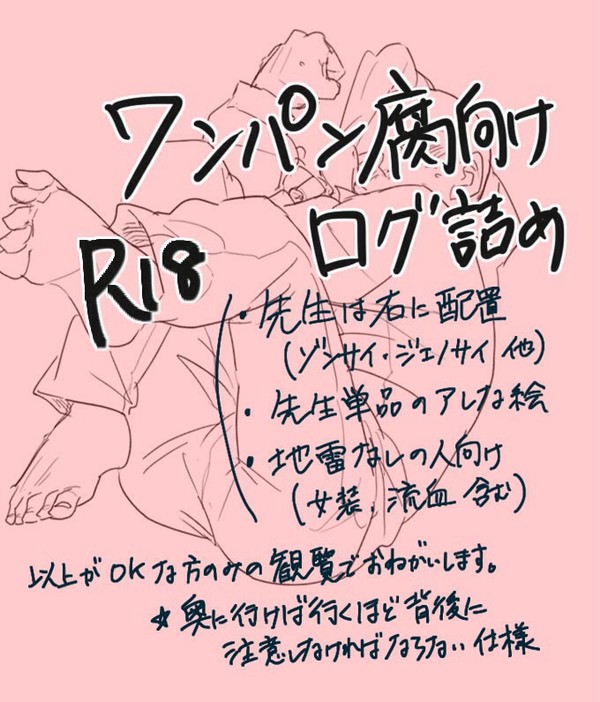 ワンパン腐向け
ログ詰め
R18
・先生は右に配置
(ゾンサイ・ジェノサイ 他)
・先生単品のアレな絵
・地雷なしの人向け
(女装、流血 含む)
以上がOKな方のみの観覧でおねがいします。
☆奥に行けば行くほど背後に
注意しなければならない仕様